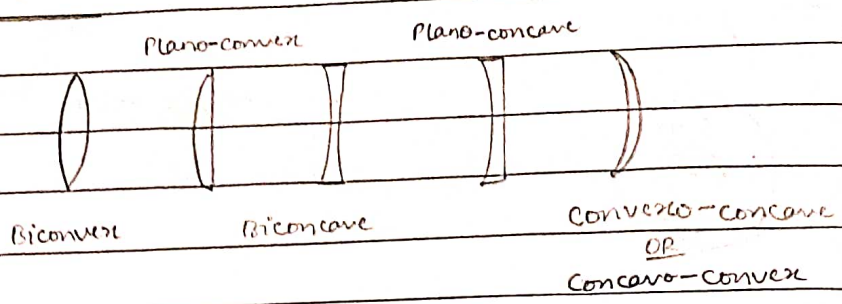 Plano-convex
Plano-concave
Biconvex
Biconcave
Convexo-concave
OR
Concavo-convex